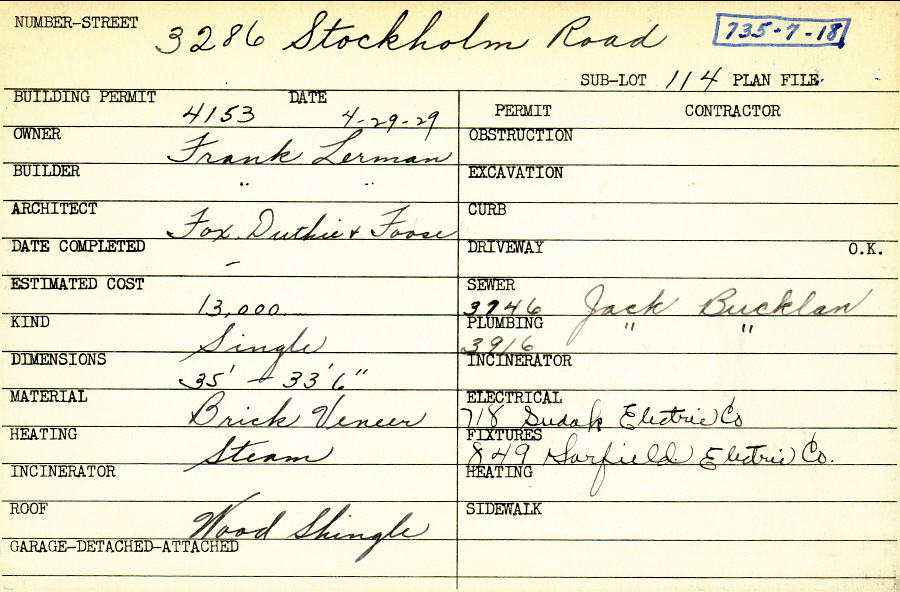 NUMBER-STREET
3286 Stockholm Road
735-7-18
SUB-LOT 114 PLAN FILE
BUILDING PERMIT 4153 DATE 4-29-29
OWNER Frank Lerman
BUILDER " "
ARCHITECT Fox, Duthie & Foose
DATE COMPLETED -
ESTIMATED COST 13,000
KIND Single
DIMENSIONS 35' - 33'6"
MATERIAL Brick Veneer
HEATING Steam
INCINERATOR
ROOF Wood Shingle
GARAGE-DETACHED-ATTACHED
PERMIT CONTRACTOR
OBSTRUCTION
EXCAVATION
CURB
DRIVEWAY O.K.
SEWER
3746 Jack Bucklan
PLUMBING
3916 " "
INCINERATOR
ELECTRICAL
718 Electric Co
FIXTURES
849 Garfield Electric Co.
HEATING
SIDEWALK